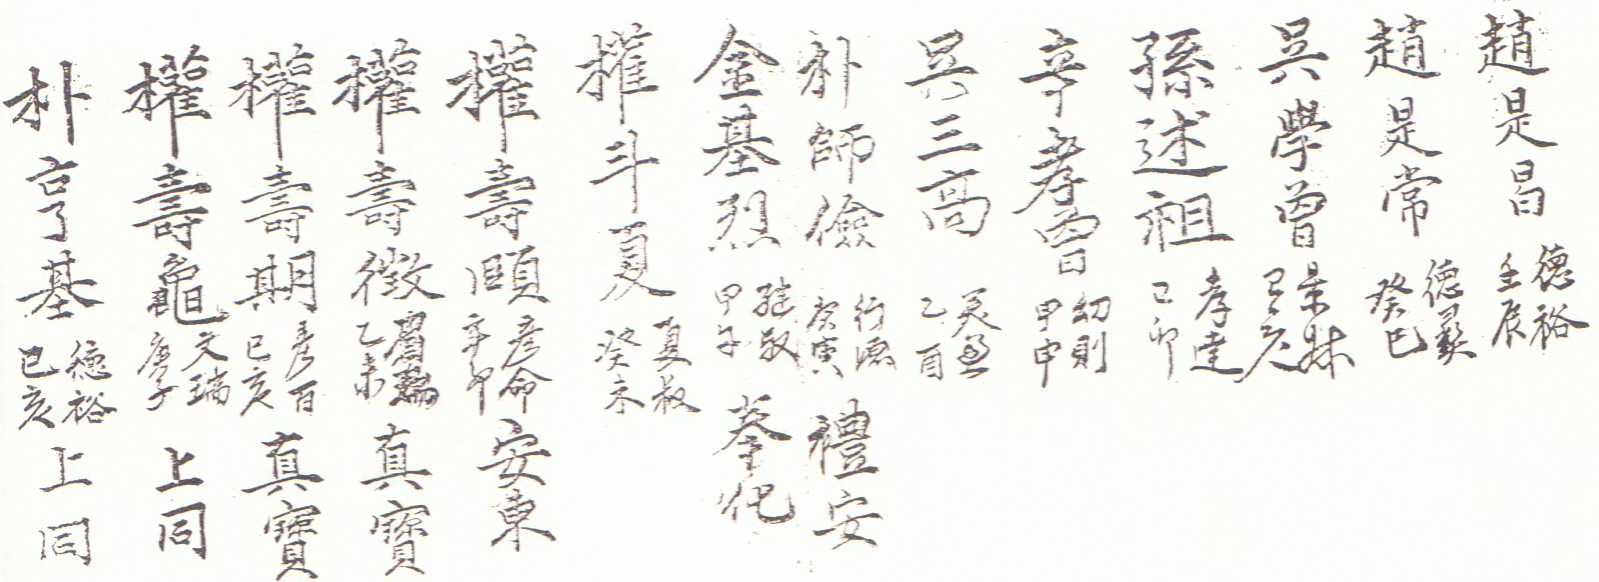 趙是昌 德裕 壬辰
趙是常 德彛 癸巳
吳學曾 景林 己亥
孫述祖 孝達 己卯
辛孝曾 幼則 甲申
吳三高 乙酉
朴師儉 行源 庚寅 禮安
金基烈 甲子 奉化
權斗夏 夏叔 癸未
權壽頤 彦命 辛卯 安東
權壽徵 乙未 真寶
權壽期 彦百 己亥 真寶
權壽龜 文瑞 庚子 上同
朴亨基 德裕 己亥 上同